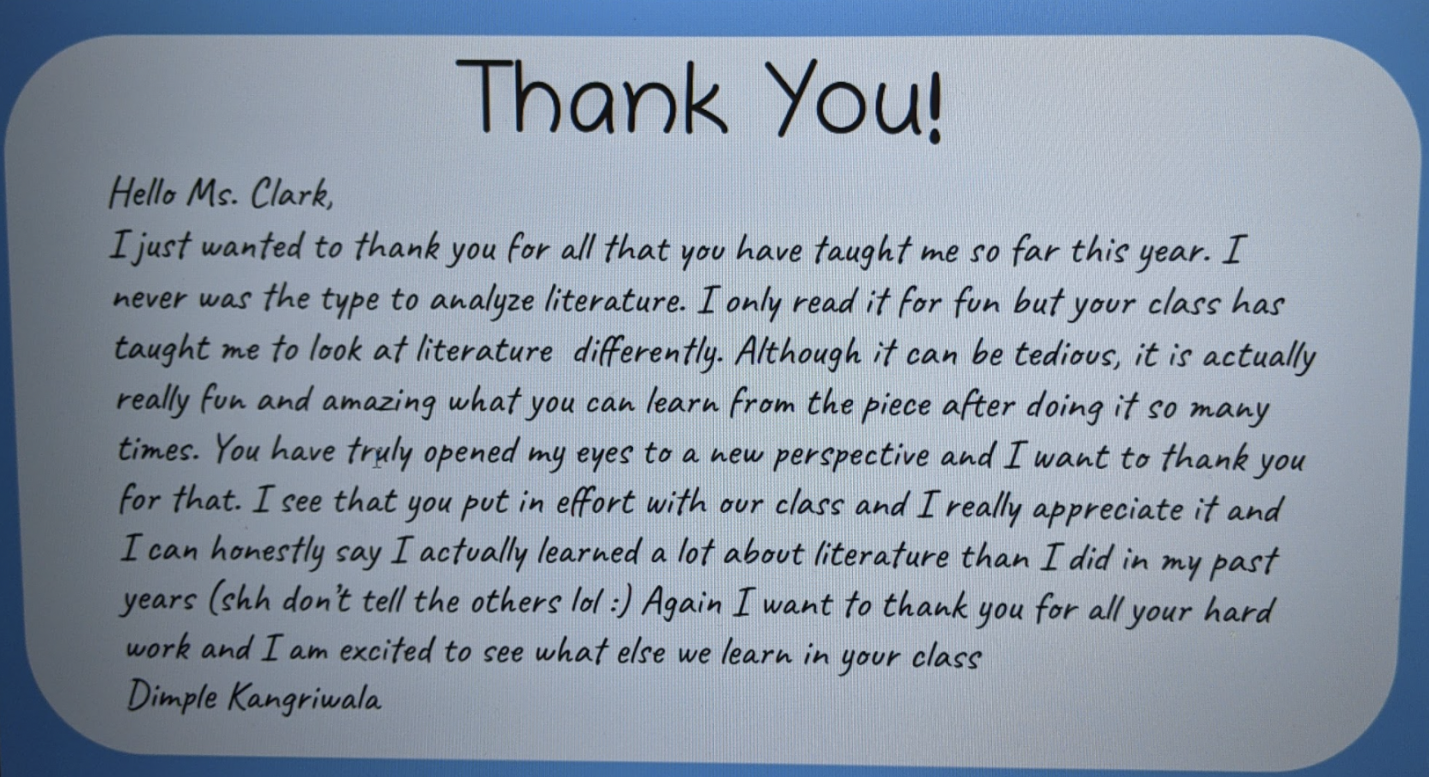 Thank You!
Hello Ms. Clark,
I just wanted to thank you for all that you have taught me so far this year. I
never was the type to analyze literature. I only read it for fun but your class has
taught me to look at literature differently. Although it can be tedious, it is actually
really fun and amazing what you can learn from the piece after doing it so many
times. You have truly opened my eyes to a new perspective and I want to thank you
for that. I see that you put in effort with our class and I really appreciate it and
I can honestly say I actually learned a lot about literature than I did in my past
years (shh don't tell the others lol :) Again I want to thank you for all your hard
work and I am excited to see what else we learn in your class
Dimple Kangriwala